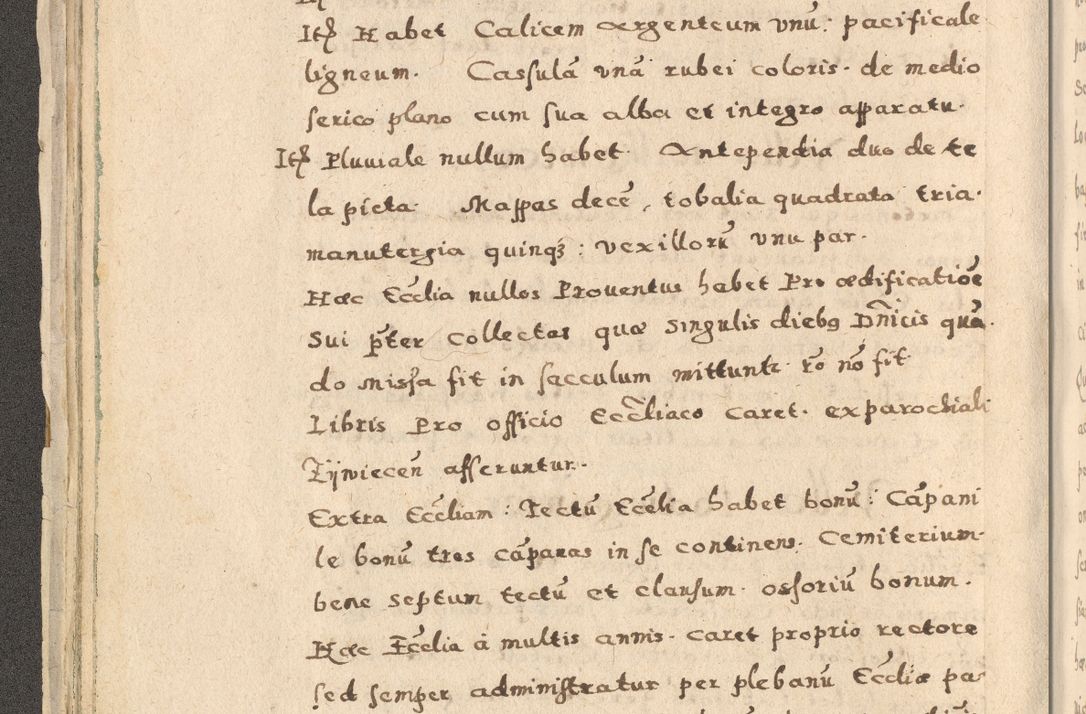 Itē Habet Calicem Argenteum vnū. pacificale
ligneum. Cassulā vnā rubei coloris. de medio
serico plano cum sua alba et integro apparatu.
Itē Pluuiale nullum habet. Antependia duo de te
la picta. Mappas decē, tobalia quadrata tria.
manutergia quinqʒ : vexillorū vnū par.
Haec Eccl̄ia nullos Prouentus habet Pro aedificatiōe
Sui p̄ter Collectas quae singulis diebꝫ Dn̄icis quā
do Missa fit in sacculum mittuntr. rō nō fit
Libris Pro officio Eccl̄iaco caret. ex parochiali
Zÿwiecen̄ afferuntur.
Extra Eccl̄iam : Tectū Eccl̄ia habet bonū : Cāpani
le bonū tres cāpanas in se continens. Cemiterium
bene septum tectū et clausum. ossoriū bonum.
Haec Eccl̄ia à multis annis. caret proprio rectore
sed semper administratur per plebanū Eccl̄iae pa